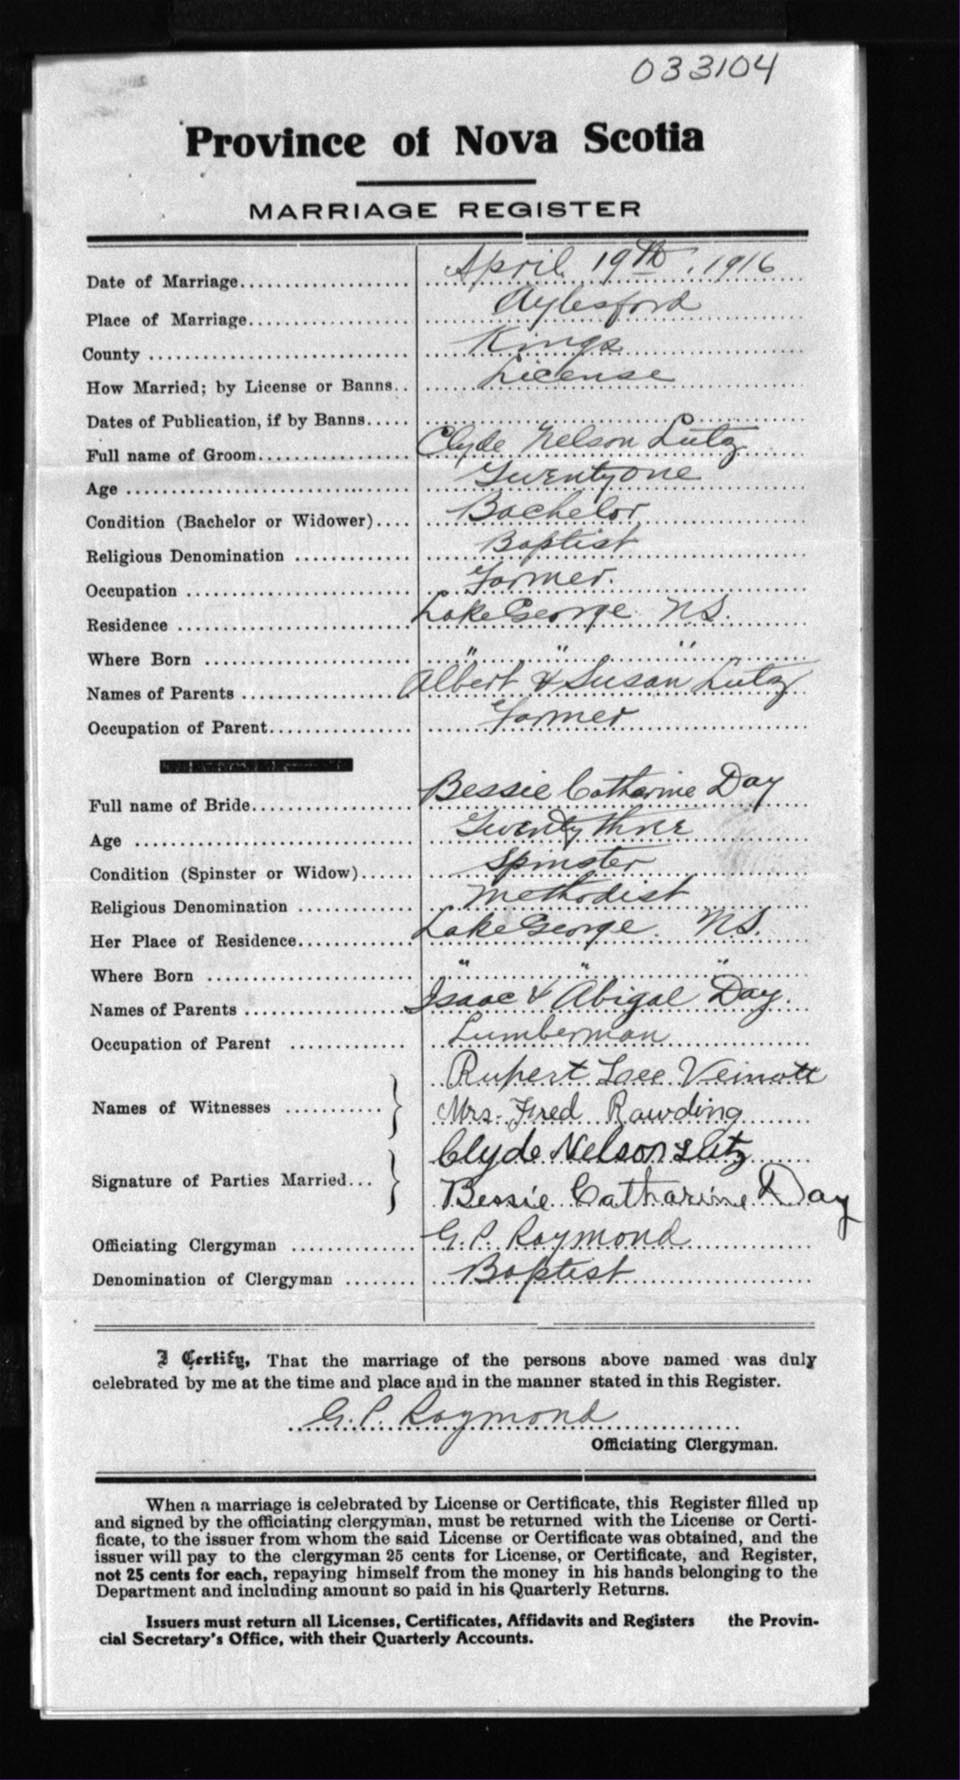 033104
Province of Nova Scotia
MARRIAGE REGISTER
Date of Marriage.................. April 19th, 1916
Place of Marriage................. Aylesford
County ........................... Kings
How Married; by License or Banns.. License
Dates of Publication, if by Banns.....
Full name of Groom................ Clyde Nelson Lutz
Age .............................. Twenty one
Condition (Bachelor or Widower).... Bachelor
Religious Denomination ............ Baptist
Occupation ....................... Farmer.
Residence ........................ Lake George N.S.
Where Born ....................... " " "
Names of Parents ................. Albert & Susan Lutz
Occupation of Parent.............. Farmer
Full name of Bride................ Bessie Catharine Day
Age .............................. Twenty three
Condition (Spinster or Widow)...... Spinster
Religious Denomination ............ Methodist
Her Place of Residence............ Lake George. N.S.
Where Born ....................... " " "
Names of Parents ................. Isaac & Abigal Day.
Occupation of Parent ............. Lumberman
Rupert Lee Veinott
Names of Witnesses ........... } Mrs. Fred Rawding
Clyde Nelson Lutz
Signature of Parties Married... } Bessie Catharine Day
Officiating Clergyman ............ G. P. Raymond
Denomination of Clergyman ........ Baptist
I Certify, That the marriage of the persons above named was duly
celebrated by me at the time and place and in the manner stated in this Register.
G. P. Raymond
Officiating Clergyman.
When a marriage is celebrated by License or Certificate, this Register filled up
and signed by the officiating clergyman, must be returned with the License or Certi-
ficate, to the issuer from whom the said License or Certificate was obtained, and the
issuer will pay to the clergyman 25 cents for License, or Certificate, and Register,
not 25 cents for each, repaying himself from the money in his hands belonging to the
Department and including amount so paid in his Quarterly Returns.
Issuers must return all Licenses, Certificates, Affidavits and Registers the Provin-
cial Secretary's Office, with their Quarterly Accounts.